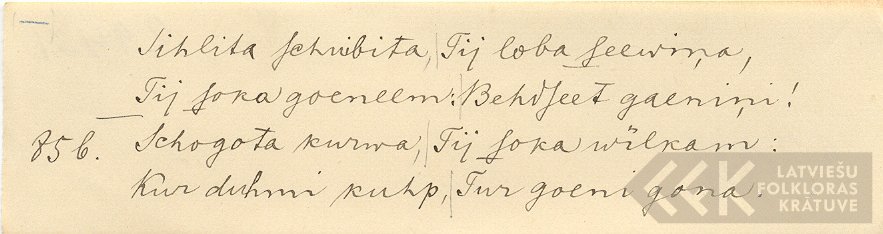 Sihlita schubita, Tij loba seewiņa,
Tij soka goeneem: Behdseet gaeniņi!
856. Schogota kurwa, Tij soka wilkam:
Kur duhmi kuhp, Tur goeni gona.
LATVIEŠU
FOLKLORAS
KRĀTUVE